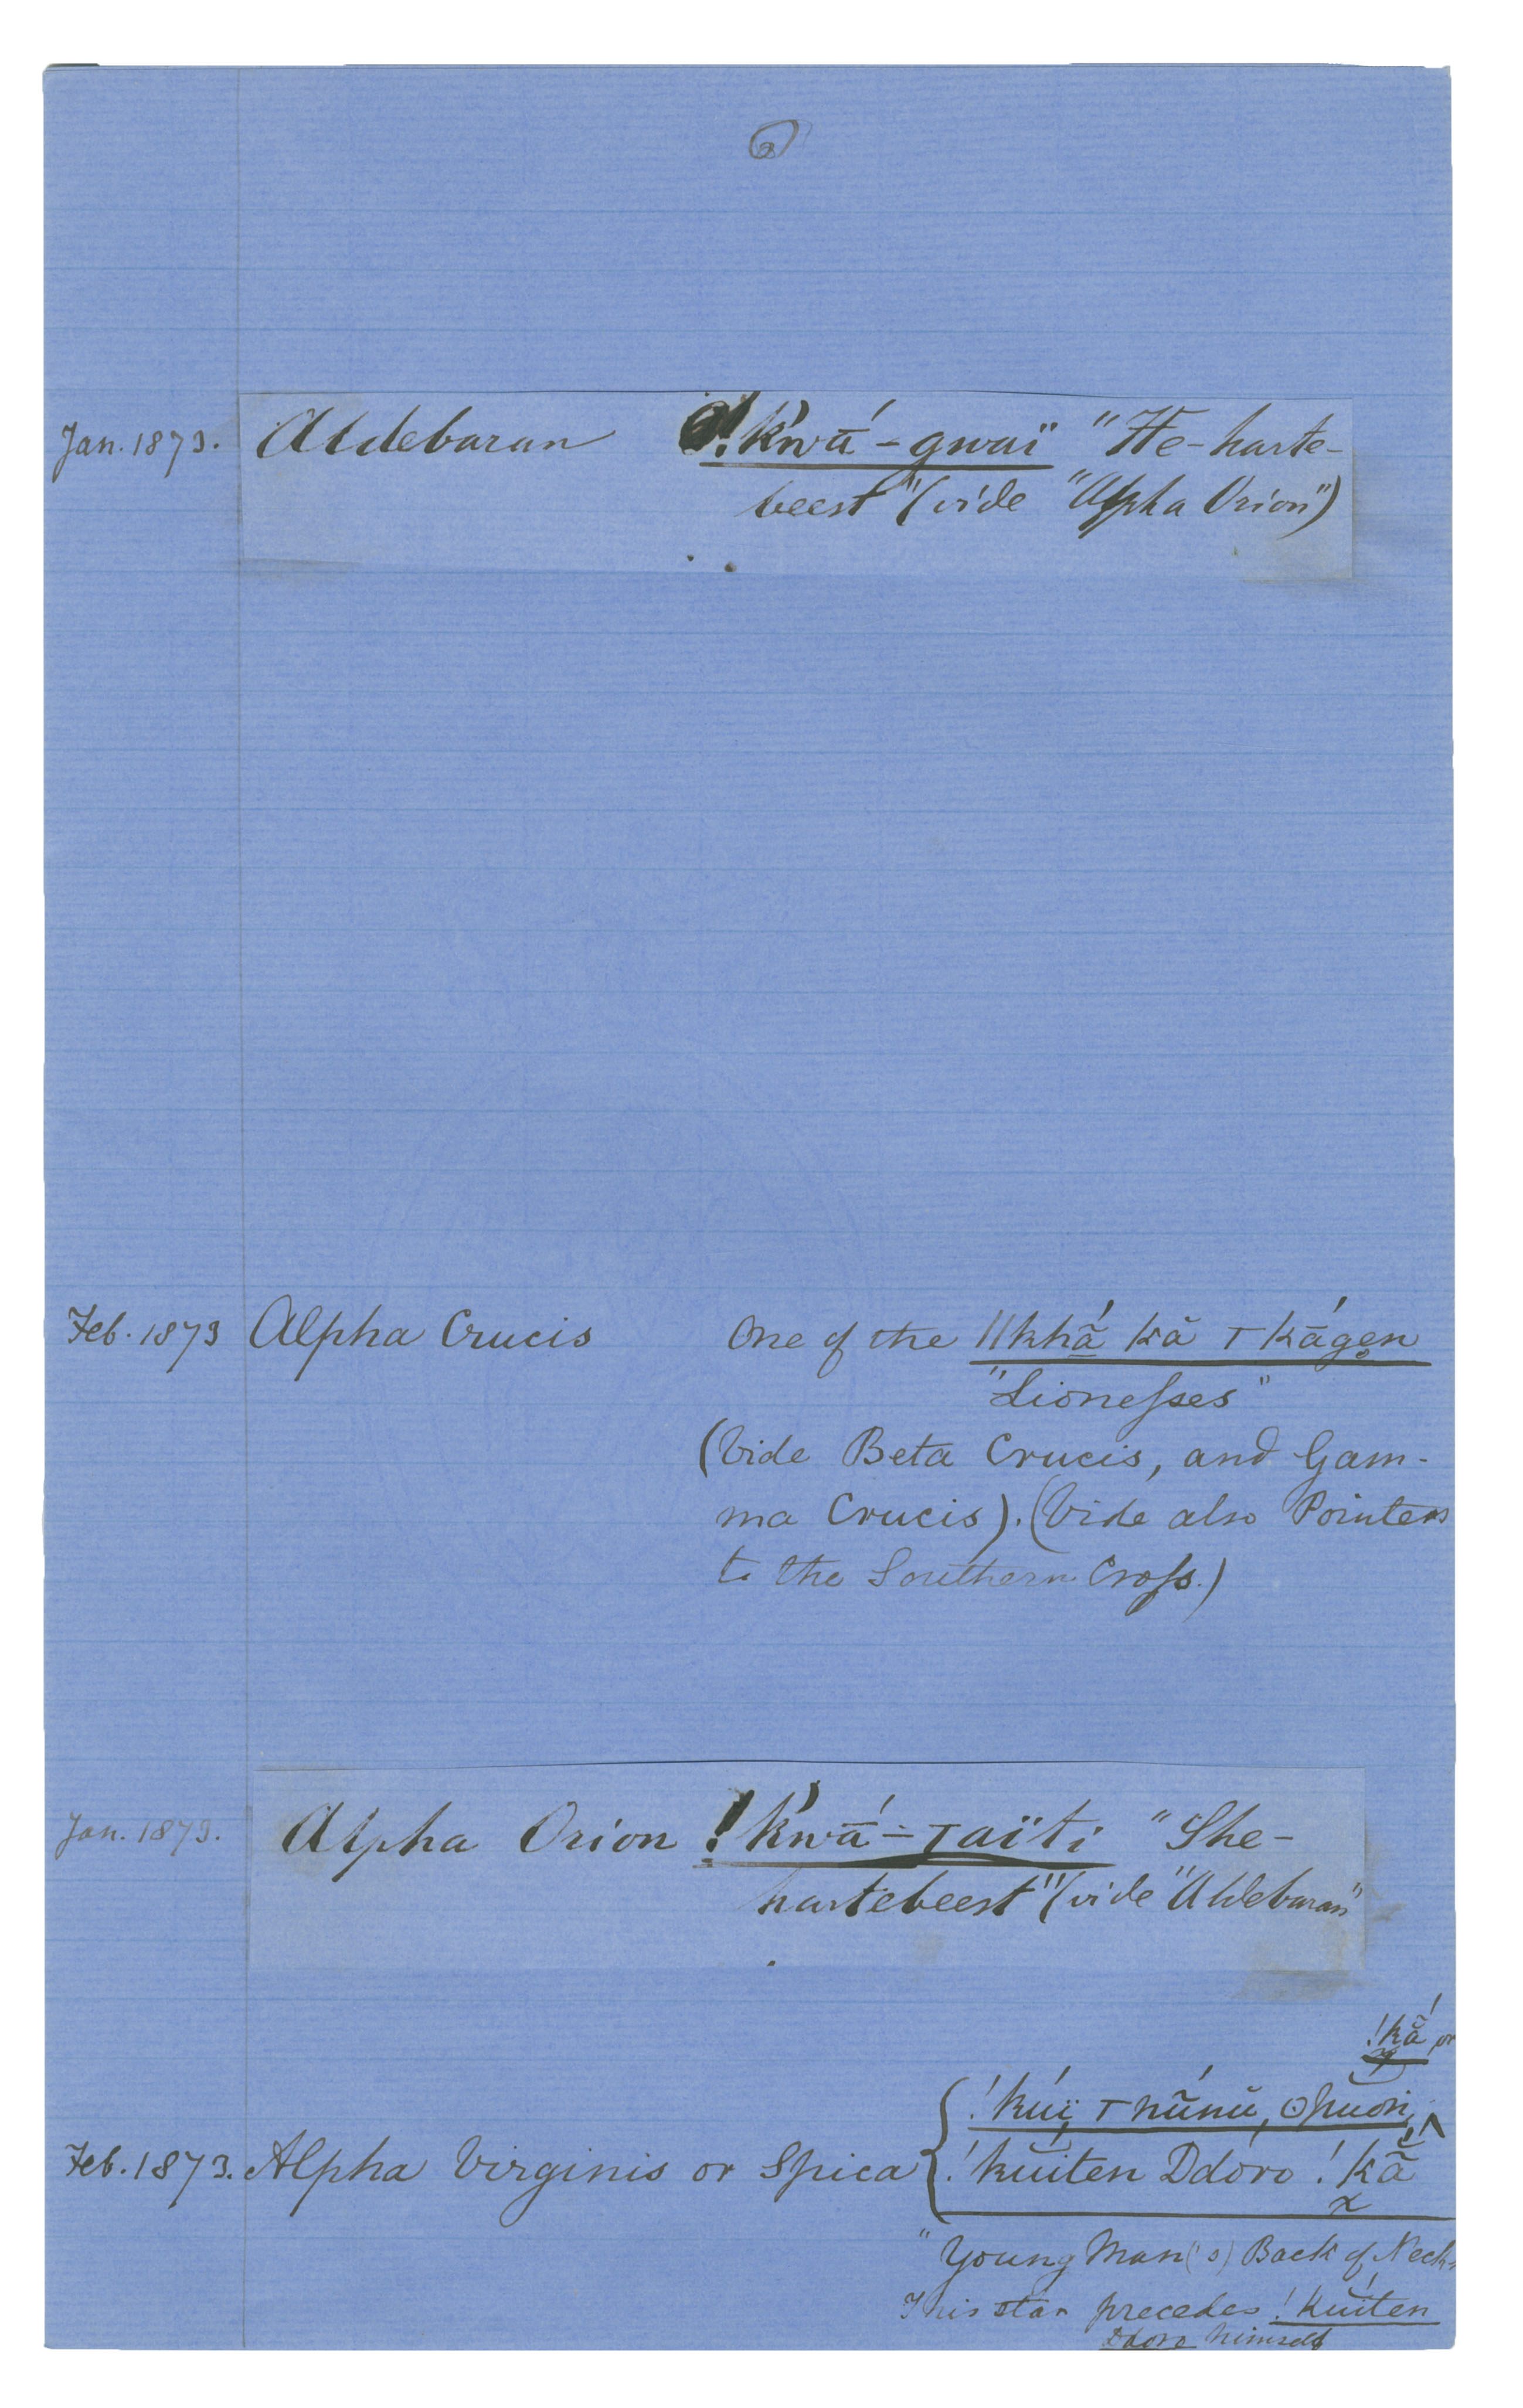 Jan. 1873. Aldebaran !k'wā́-gwaï "He-harte-
beest" (vide "Alpha Orion")
Feb. 1873 Alpha Crucis One of the ||khā̃́ kă ⊤kā́gen
"Lionesses"
(Vide Beta Crucis, and Gam-
ma Crucis). (Vide also Pointers
to the Southern Cross.)
Jan. 1873. Alpha Orion !k'wā́-⊤aïti "She-
hartebeest" (vide "Aldebaran"
!kā̃́ or
!kúï ⊤nū́nŭ, ʘpuon,
Feb. 1873. Alpha Virginis or Spica !kuíten Ddóro !kā̃
"Young Man('s) Back of Neck"
This star precedes !kuíten
Ddoro himself